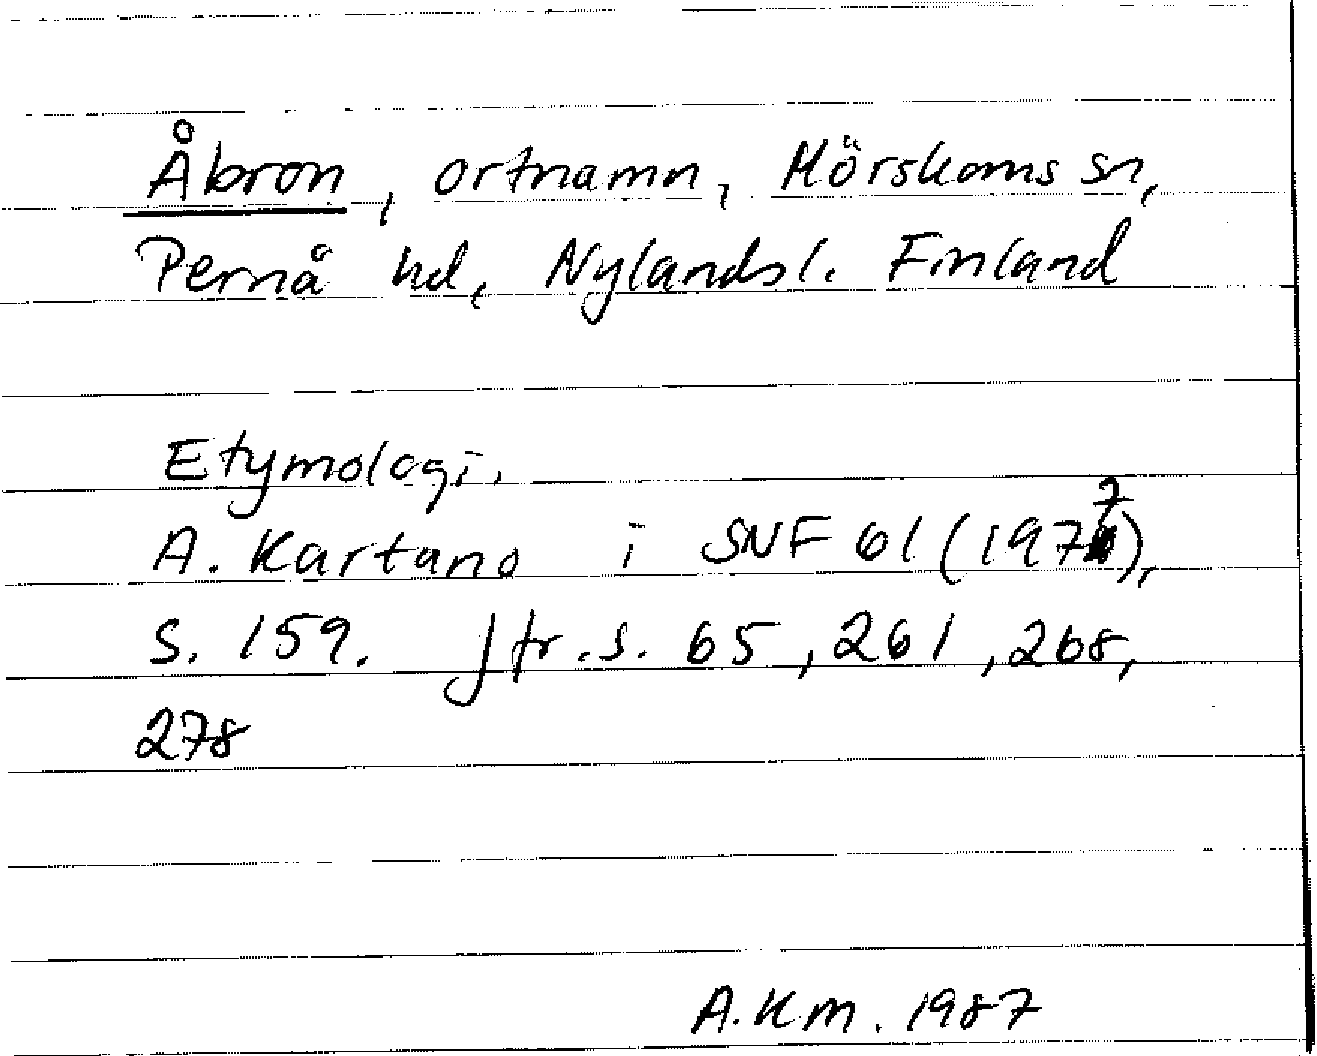 Åbron, ortnamn, Mörskoms sn,
Pernå hd, Nylandsl. Finland
Etymologi.
A. Kartano i SNF 61 (1977),
s. 159. Jfr. s. 65, 261, 268,
278
A. Km. 1987